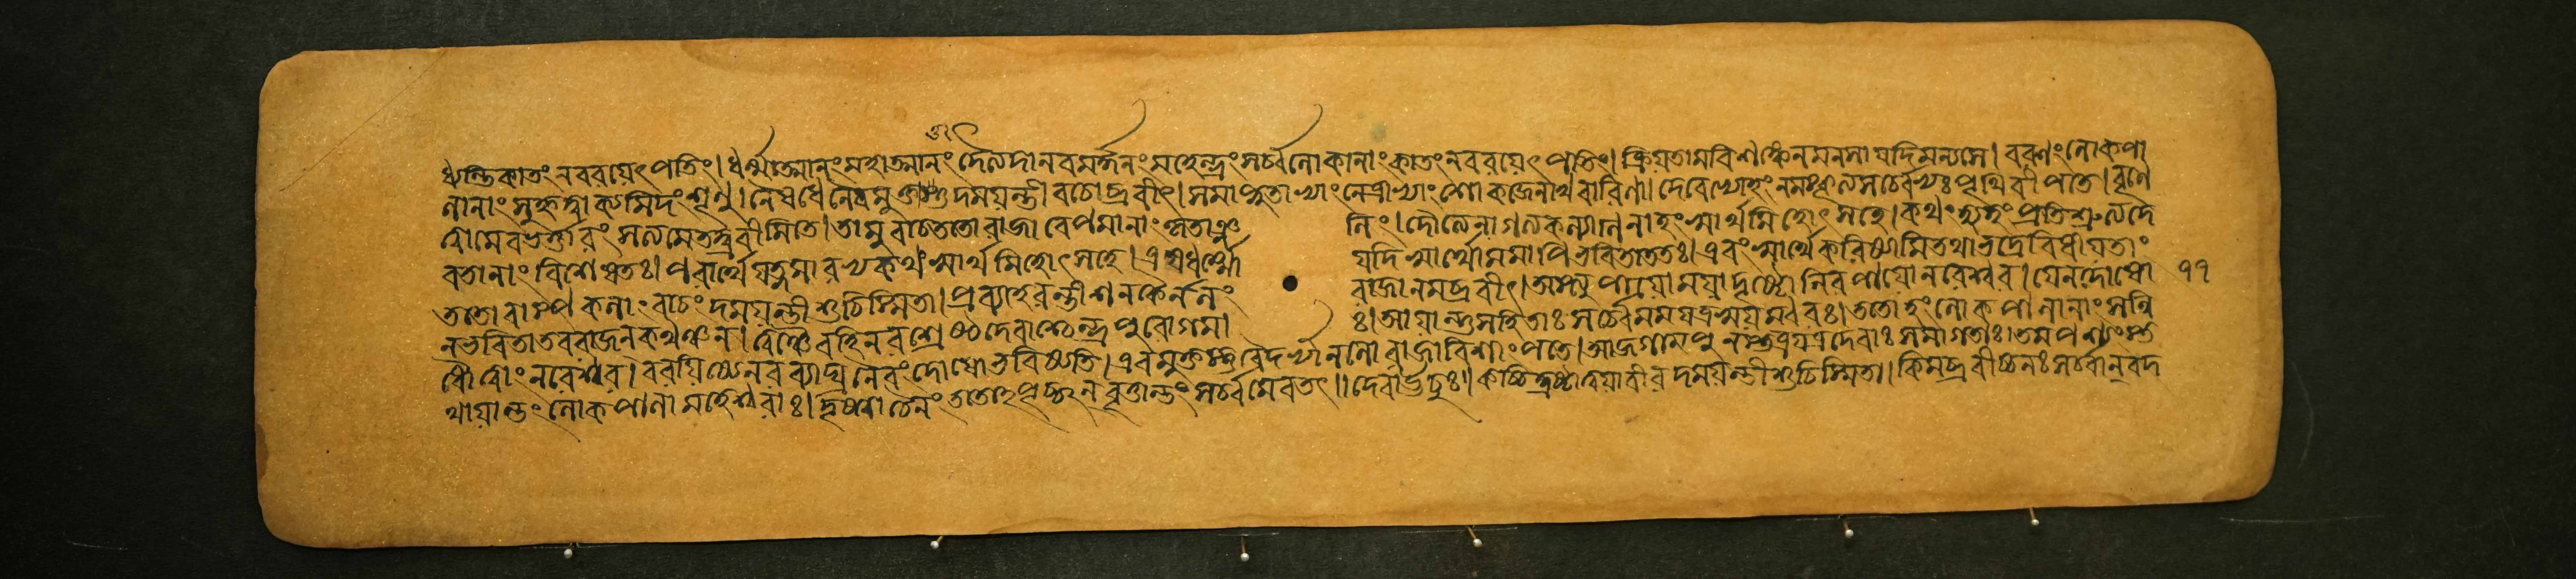 ধ্যন্তি কাতং নবরয়েৎ পতিং। ধর্ম্মাত্মানং মহাত্মানং দৈত্যদানবমর্দ্দনং মহেন্দ্রং সর্ব্বলোকানাং কাতং নবরয়েৎ পতিং। ক্রিয়তামবিশঙ্কেন মনসা যদি মন্যসে। বরুণং লোকপা
লানাং সুহৃদ্বাক্যমিদং শৃণু। নৈষধেনৈবমুক্তা তু দময়ন্তী বচোব্রবীৎ। সমাপ্লুতাভ্যাং নেত্রাভ্যাং শোকজেনাথ বারিণা। দেবেভ্যোহং নমস্কৃত্য সর্ব্বেভ্যঃ পৃথিবীপতে। বৃণে
ত্বামেব ভর্ত্তারং সত্যমেতদ্ব্রবীমি তে। তামুবাচ ততো রাজা বেপমানাং কৃতাঞ্জলিং। দৌত্যেনাগত্য কল্যাণি নাহং স্বার্থমিহোৎসহে। কথং হ্যহং প্রতিশ্রুত্য দে
বতানাং বিশেষতঃ। পরার্থে যত্নমারভ্য কথং স্বার্থমিহোৎসহে। এষ ধর্ম্মো যদি স্বার্থো মমাপি ভবিতা ততঃ। এবং স্বার্থং করিষ্যামি তথা ভদ্রে বিধীয়তাং ১১
ততো বাষ্পাকলাং বাচং দময়ন্তী শুচিস্মিতা। প্রব্যাহরন্তী শনকৈর্নলং রাজানমব্রবীৎ। অস্ত্যুপায়ো ময়া দৃষ্টো নিরপায়ো নরেশ্বর। যেন দোষো
ন ভবিতা তব রাজন কথঞ্চন। ত্বঞ্চৈব হি নরশ্রেষ্ঠ দেবাশ্চেন্দ্রপুরোগমাঃ। আয়ান্তু সহিতাঃ সর্ব্বে মম যত্র স্বয়ম্বরঃ। ততোহং লোকপালানাং সন্নি
ধৌ ত্বাং নরেশ্বর। বরয়িষ্যে নরব্যাঘ্র নৈবং দোষো ভবিষ্যতি। এবমুক্তস্তু বৈদর্ভ্যা নলো রাজা বিশাংপতে। আজগাম পুনস্তত্র যত্র দেবাঃ সমাগতাঃ। তমপশ্যংস্ত
থায়ান্তং লোকপালা মহেশ্বরাঃ। দৃষ্ট্বা চৈনং ততোহপৃচ্ছন্ বৃত্তান্তং সর্ব্বমেবতৎ॥ দেবাঊচুঃ। কচ্চিদ্দৃষ্টা ত্বয়া বীর দময়ন্তী শুচিস্মিতা। কিমব্রবীচ্চ নঃ সর্ব্বান্ বদ